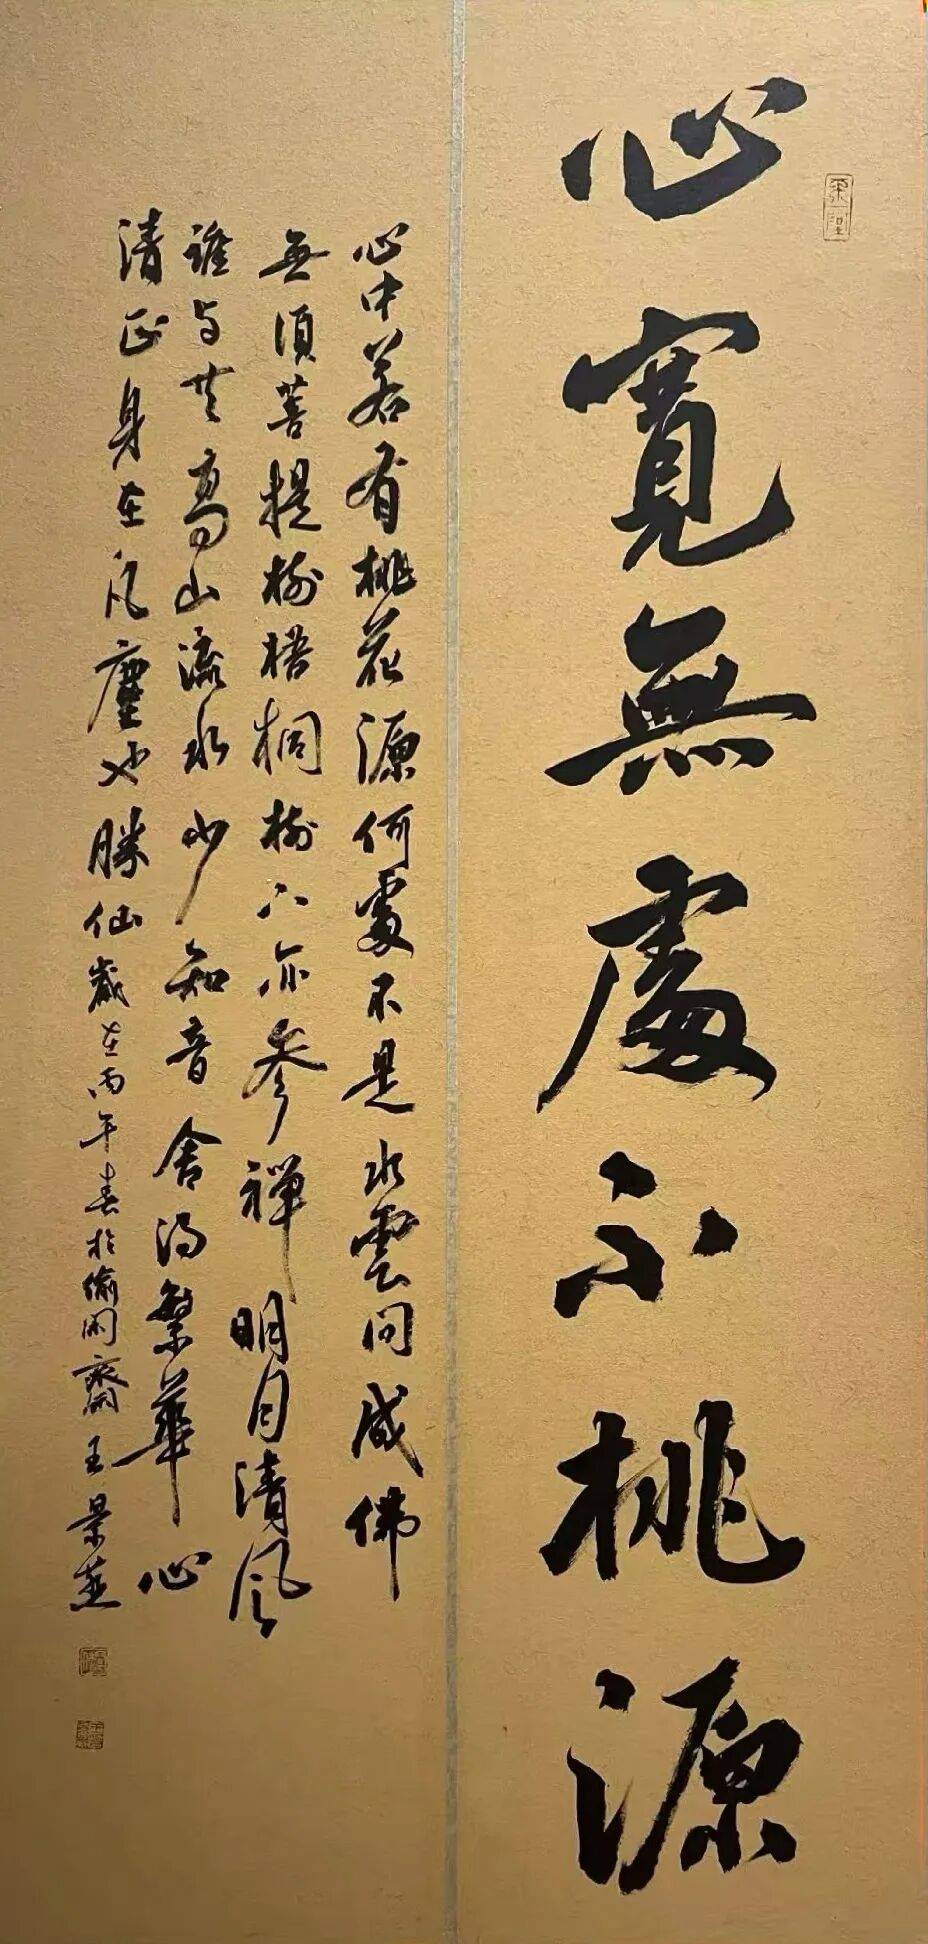 心寬無處不桃源
心中若有桃花源何處不是水雲間成佛
無須菩提樹梧桐樹下亦參禪明月清風
誰与共高山流水少知音舍得繁華心
清正身在凡塵也勝仙歲在丙午春於偷閑齋王景燕